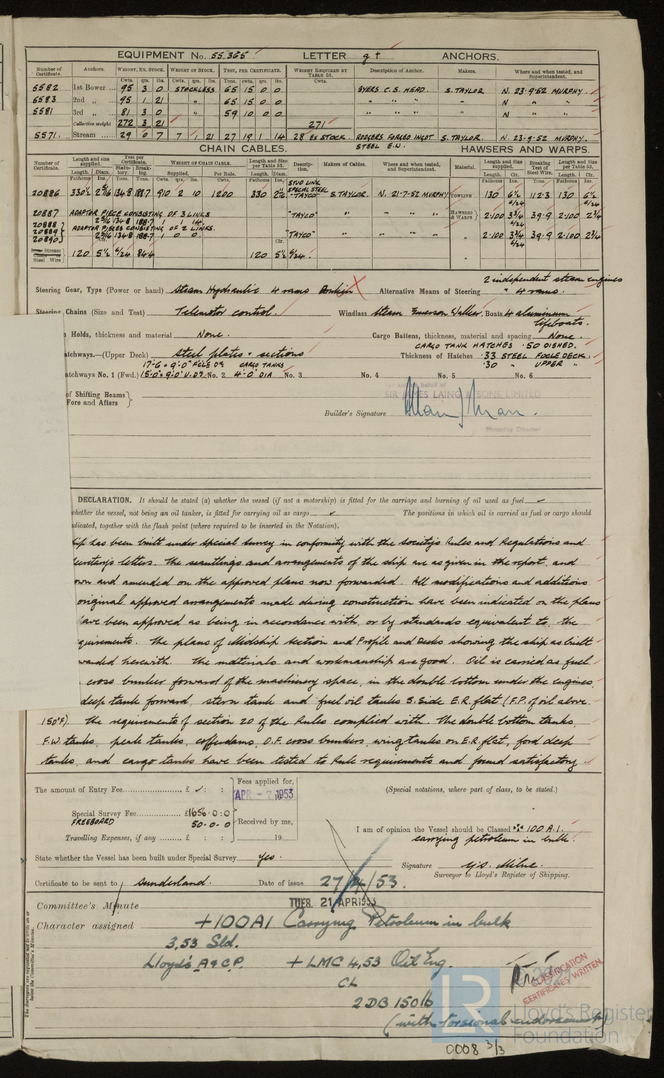 EQUIPMENT No. 55.365 LETTER g† ANCHORS.
Number of Certificate. Anchors. WEIGHT, EX. STOCK. WEIGHT OF STOCK. TEST, PER CERTIFICATE. WEIGHT REQUIRED BY TABLE 53. Description of Anchor. Makers. Where and when tested, and Superintendent.
5582 1st Bower 95 3 0 STOCKLESS 65 15 0 0 BYERS C.S. HEAD. S. TAYLOR N. 23.9.52 MURPHY.
5583 2nd „ 95 1 21 „ 65 15 0 0 „ „ „ „ N „ „
5581 3rd „ 81 3 0 „ 59 10 0 0 „ „ „ „ N „ „
Collective weight 272 3 21 271
5571 Stream 29 0 7 7 1 21 27 19 1 14 28 EX STOCK. RODGERS FORGED INGOT STEEL E.N. S. TAYLOR. N. 23-9-52 MURPHY.
CHAIN CABLES. HAWSERS AND WARPS.
Number of Certificate. Length and size supplied. Test per Certificate. WEIGHT OF CHAIN CABLE. Length and Size per Table 53. Description. Makers of Cables. Where and when tested, and Superintendent. Material. Length and size supplied. Breaking Test of Steel Wire. Length and Size per Table 53.
20886 330½ 2 5/16 134·8 188·7 910 2 10 1200 330 STUD LINK SPECIAL STEEL "TAYCO" S. TAYLOR N. 21-7-52 MURPHY TOWLINE 130 6½ 6/24 112·3 130 6½
20887 ADAPTOR PIECE CONSISTING OF 3 LINKS. "TAYCO" „ „ „ HAWSERS & WARPS 2·100 3¾ 6/24 39·9 2·100 2¾
20888 2 5/16 134·8 188·7 1 1 14.
20889 ADAPTOR PIECES CONSISTING OF 2 LINKS.
20890 2 5/16 134·8 188·7 1 0 0. "TAYCO" „ „ „ 2·100 3¾ 6/24 39·9 2·100 2¾
Steel Wire 120 5½ 6/24 84·4 120 5½ 6/24 „
Steering Gear, Type (Power or hand) Steam Hydraulic 4 rams Alternative Means of Steering 2 independent steam engines „ 4 rams.
Steering Chains (Size and Test) Telemotor control. Windlass Steam Emerson Walker. Boats 4 aluminium lifeboats.
Holds, thickness and material None. Cargo Battens, thickness, material and spacing None.
CARGO TANK HATCHES ·50 DISHED.
atchways.—(Upper Deck) Steel plates & sections Thickness of Hatches ·33 STEEL FOCLE DECK.
17'-6" × 9'-0" FCLE DK CARGO TANKS ·30 „ UPPER „
atchways No. 1 (Fwd.) 15'-0" × 9'-0" U. DK No. 2 4'-0" DIA No. 3 No. 4 No. 5 No. 6
of Shifting Beams
Fore and Afters
For and on behalf of
SIR JAMES LAING & SONS, LIMITED
Builder's Signature
Managing Director
DECLARATION. It should be stated (a) whether the vessel (if not a motorship) is fitted for the carriage and burning of oil used as fuel
whether the vessel, not being an oil tanker, is fitted for carrying oil as cargo The positions in which oil is carried as fuel or cargo should
indicated, together with the flash point (where required to be inserted in the Notation).
ship has been built under special survey in conformity with the society's Rules and Regulations and
letters. The scantlings and arrangements of the ship are as given in the report, and
own and amended on the approved plans now forwarded. All modifications and additions
original approved arrangements made during construction have been indicated on the plans
ave been approved as being in accordance with, or by standards equivalent to, the
quirements. The plans of Midship section and Profile and Decks showing the ship as built
warded herewith. The materials and workmanship are good. Oil is carried as fuel
cross bunker forward of the machinery space, in the double bottom under the engines,
deep tank forward, stern tank and fuel oil tanks S. side E.R. flat (F.P. of oil above
150°F). The requirements of section 20 of the Rules complied with. The double bottom tanks,
F.W. tanks, peak tanks, cofferdams, O.F. cross bunkers, wing tanks on E.R. flat, ford deep
tanks, and cargo tanks have been tested to Rule requirements and found satisfactory
The amount of Entry Fee £ : : Fees applied for, (Special notations, where part of class, to be stated.)
APR -7 1953
Special Survey Fee £1656·0·0
FREEBOARD 50-0-0 Received by me, I am of opinion the Vessel should be Classed +100 A1.
carrying petroleum in bulk.
Travelling Expenses, if any £ : : 19
State whether the Vessel has been built under Special Survey Yes. Signature G.S. Milne.
Surveyor to Lloyd's Register of Shipping.
Certificate to be sent to Sunderland. Date of issue 27/4/53.
Committee's Minute TUES. 21 APR 1953
Character assigned +100A1 Carrying Petroleum in bulk
3,53 Sld.
Lloyd's A & C.P. + LMC 4,53 Oil Eng.
CL
2 DB 150 lb
(with torsional endorsement)
CLASSIFICATION CERTIFICATES WRITTEN
LR Lloyd's Register Foundation
© 2021
0008 3/3